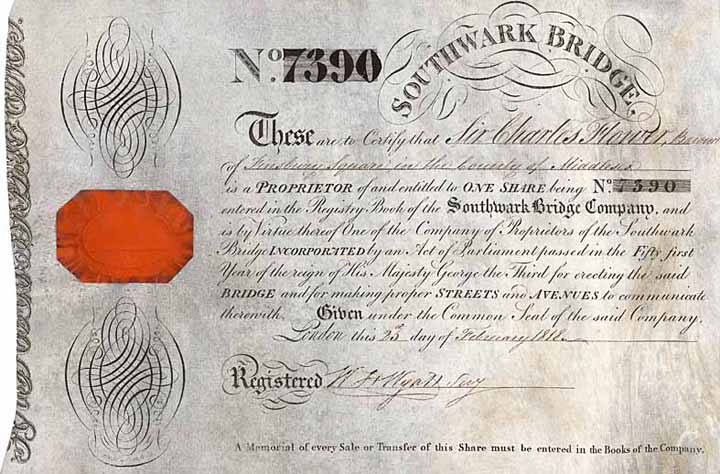 No. 7390
SOUTHWARK BRIDGE.
These are to Certify that Sir Charles Flower, Baronet
of Finsbury Square in the County of Middlesex
is a PROPRIETOR of and entitled to ONE SHARE being No. 7390
entered in the Registry Book of the Southwark Bridge Company, and
is by Virtue thereof One of the Company of Proprietors of the Southwark
Bridge INCORPORATED by an Act of Parliament passed in the Fifty first
Year of the reign of His Majesty George the Third for erecting the said
BRIDGE and for making proper STREETS and AVENUES to communicate
therewith. Given under the Common Seal of the said Company.
London this 23d day of February 1818.
Registered Wyatt Secy
A Memorial of every Sale or Transfer of this Share must be entered in the Books of the Company.